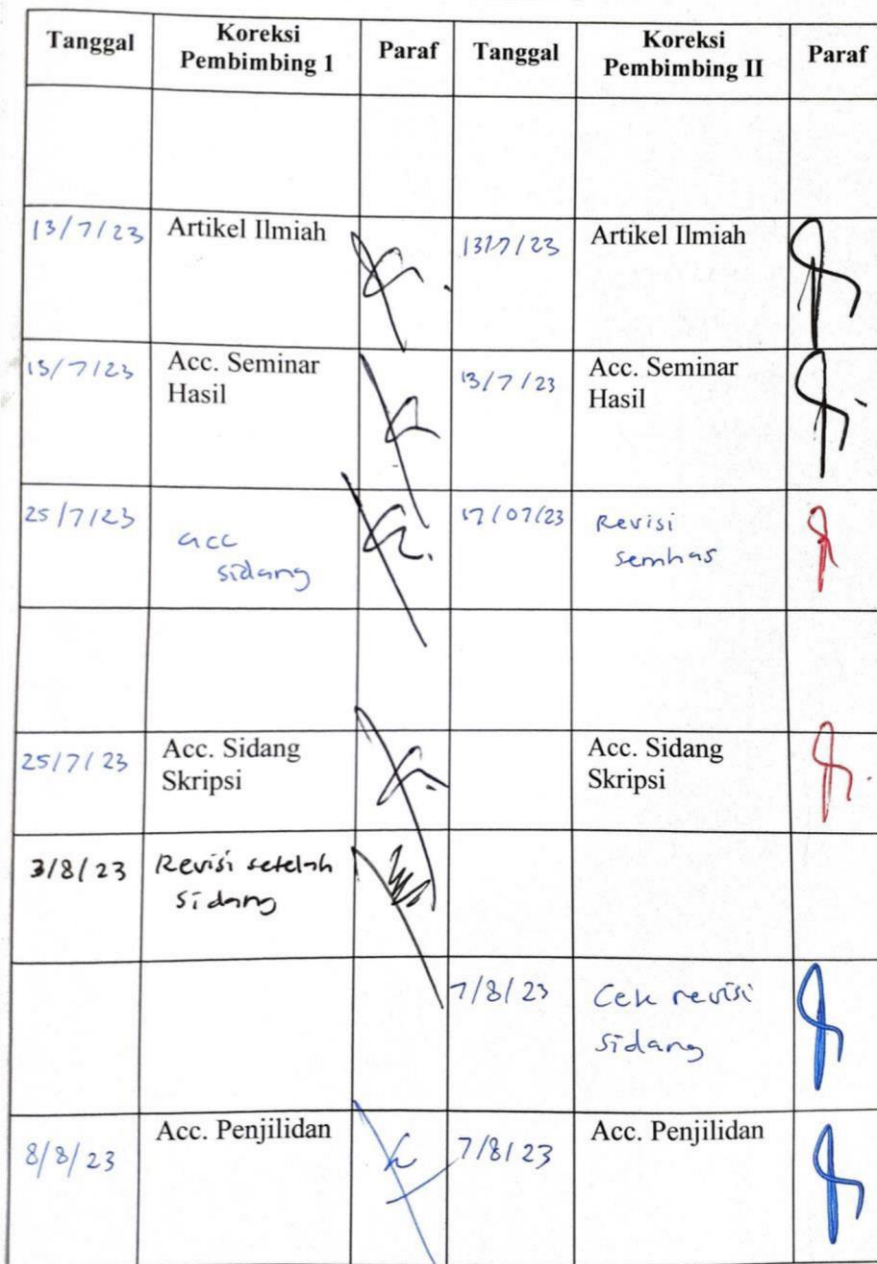 Tanggal Koreksi Pembimbing 1 Paraf Tanggal Koreksi Pembimbing II Paraf
13/7/23 Artikel Ilmiah 13/7/23 Artikel Ilmiah
13/7/23 Acc. Seminar Hasil 13/7/23 Acc. Seminar Hasil
25/7/23 acc sidang 17/07/23 Revisi semhas
25/7/23 Acc. Sidang Skripsi Acc. Sidang Skripsi
3/8/23 Revisi setelah sidang
7/8/23 Cek revisi sidang
8/8/23 Acc. Penjilidan 7/8/23 Acc. Penjilidan